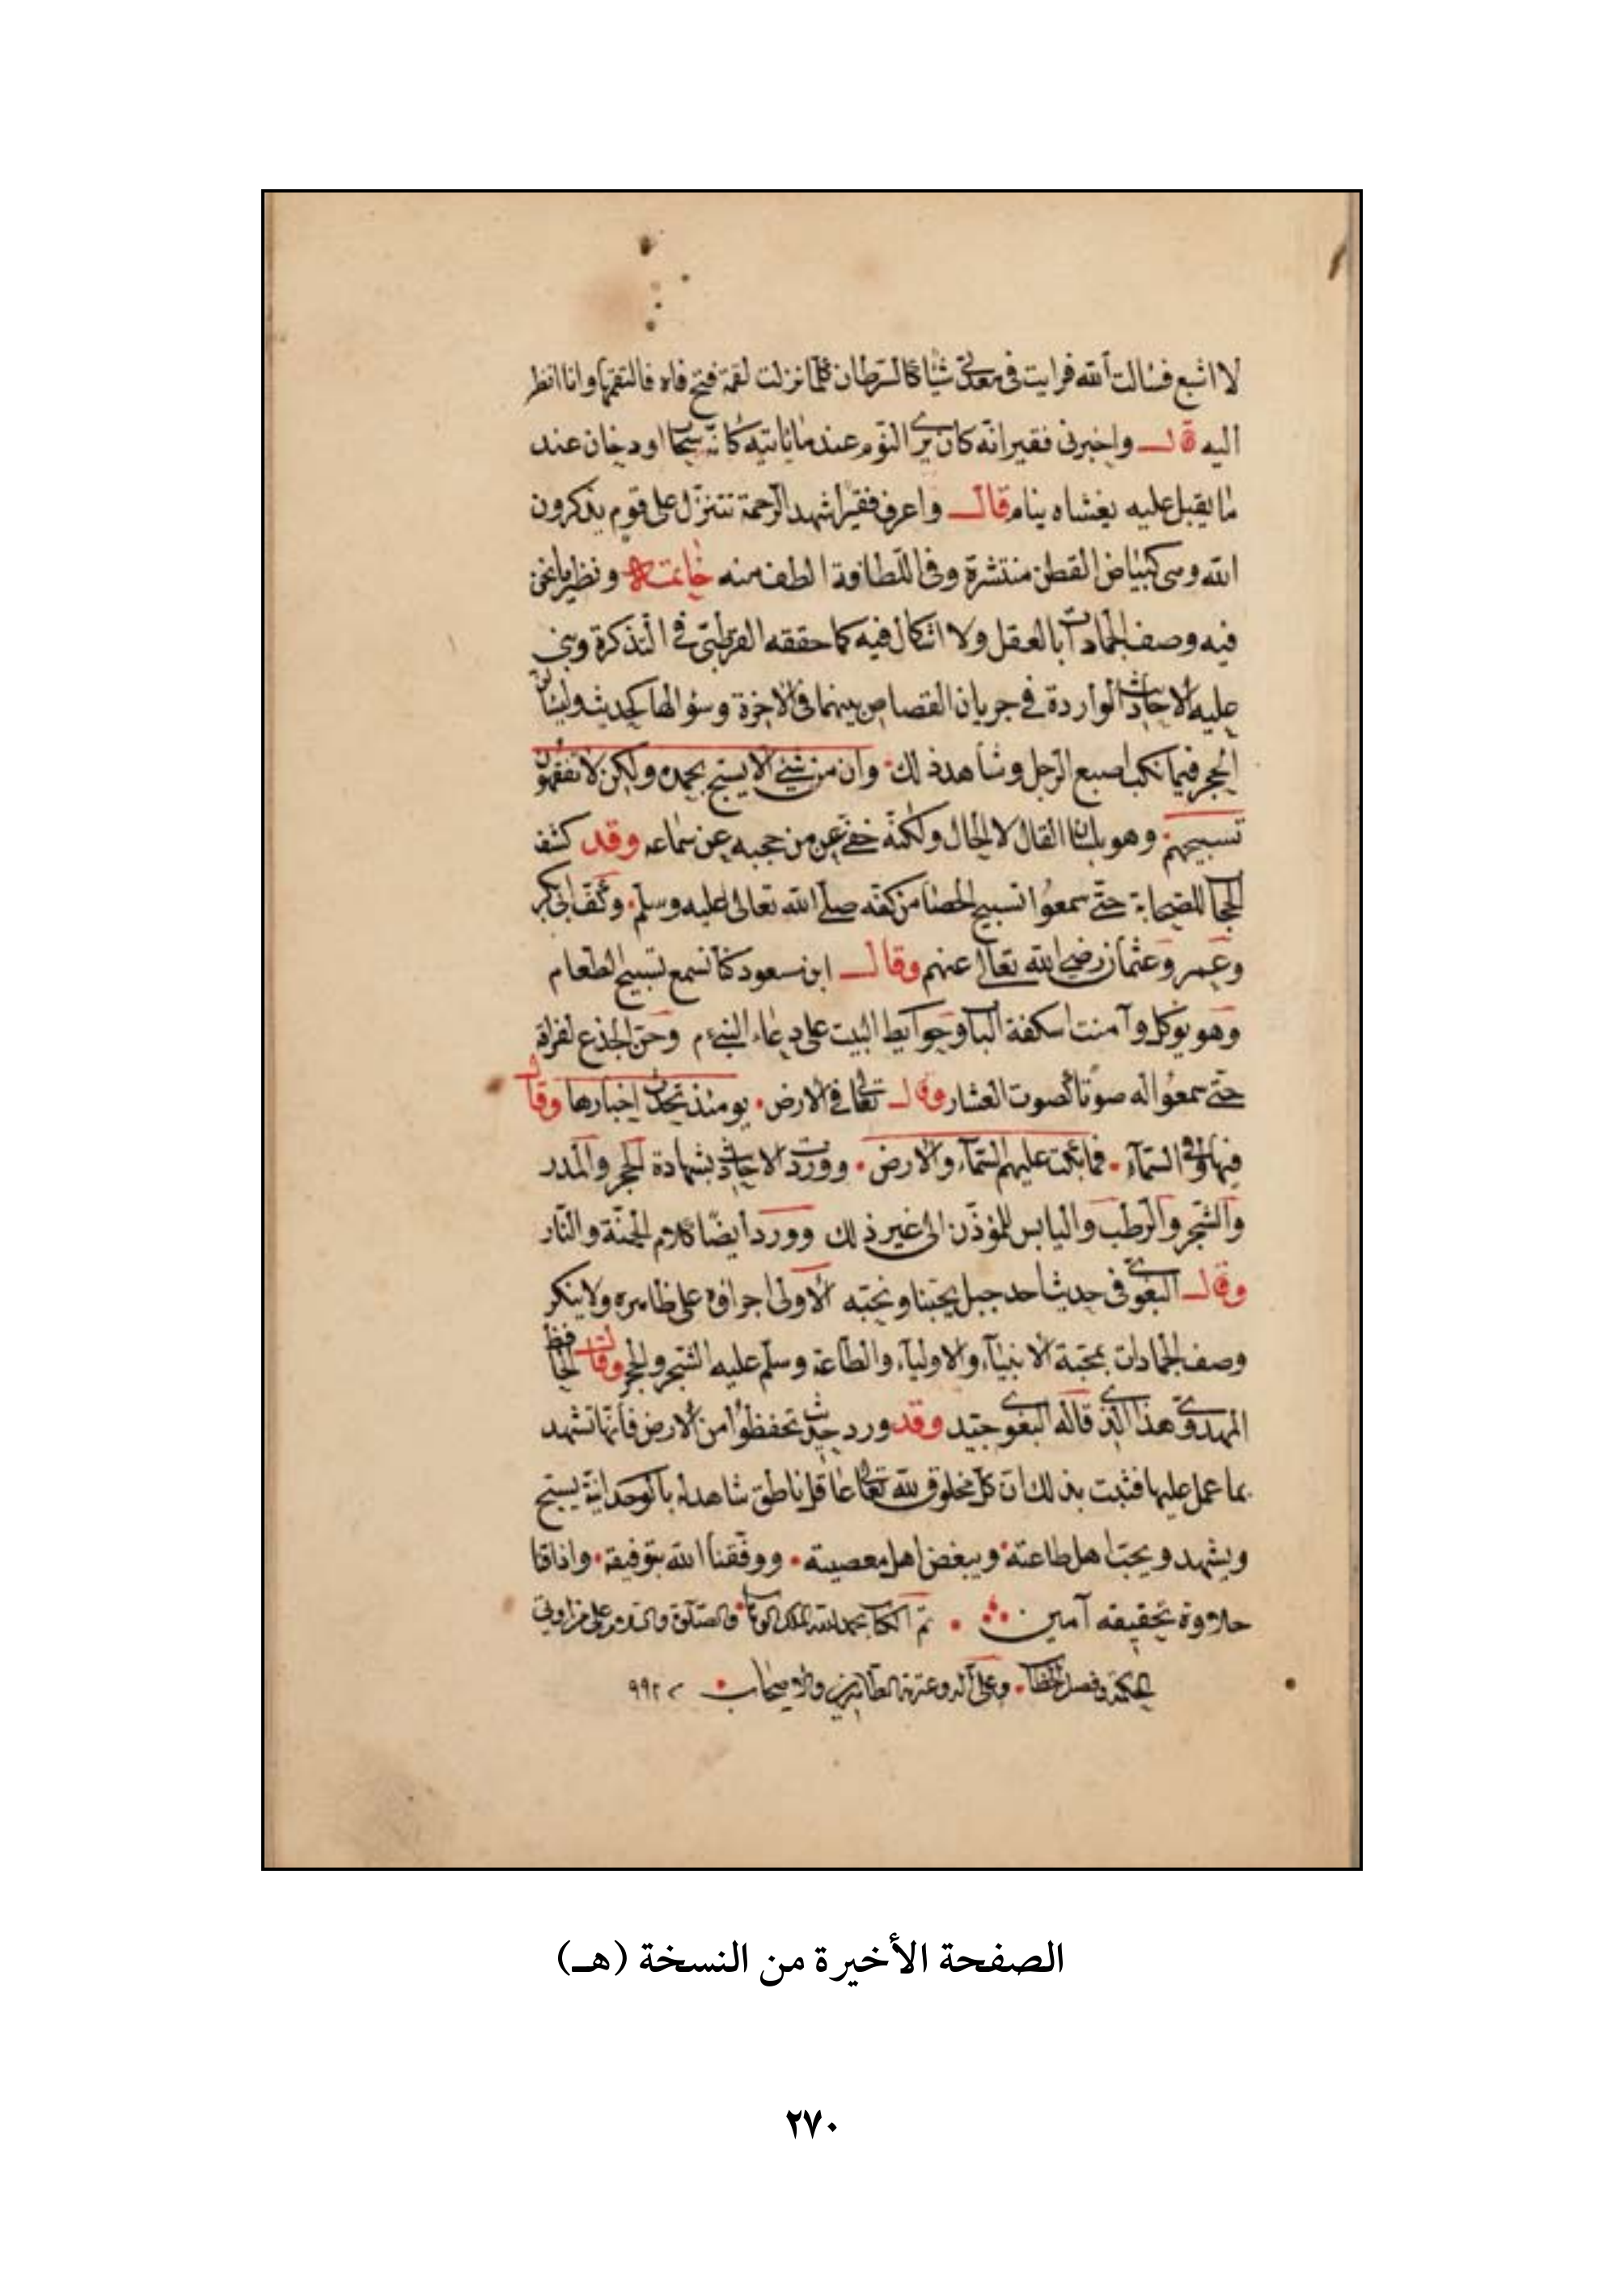 لا اشبع فسالت الله فرايت فى معدتى شيا كالسرطان كلما نزلت لقمة فتح فاه فالتقمها وانا انظر
اليه قال واخبرنى فقير انه كان يرى النوم عند ما ياتيه كانه سحاب او دخان عند
ما يقبل عليه يغشاه ينام قال واعرف فقيرا شهد الرحمة تتنزل على قوم يذكرون
الله وهى كبياض القطن منتشرة وفى اللطافة الطف منه خاتمة ونظير ما نحن
فيه وصف الجمادات بالعقل ولا اشكال فيه كما حققه القرطبى فى التذكرة وبنى
عليه الاحاديث الواردة فى جريان القصاص بينهما فى الاخرة وسؤالها كحديث وليسالن
الحجر فيما نكب اصبع الرجل وشاهد ذلك وان من شئ الا يسبح بحمده ولكن لا تفقهون
تسبيحهم وهو بلسان القال لا الحال ولكنه خفى عن من حجبه عن سماعه وقد كشف
الحجاب للصحابة حتى سمعوا تسبيح الحصا من كفه صلى الله تعالى عليه وسلم وكف ابى بكر
وعمر وعثمان رضى الله تعالى عنهم وقال ابن مسعود كنا نسمع تسبيح الطعام
وهو يوكل وآمنت اسكفة الباب وحوايط البيت على دعاء النبى ءم وحن الجذع لفراقه
حتى سمعوا له صوتا كصوت العشار وقال تعالى فى الارض يومئذ تحدث اخبارها وقال
فيها وفى السمآء فما بكت عليهم السمآء والارض وورد الاحاديث بشهادة الحجر والمدر
والشجر والرطب واليابس للمؤذن الى غير ذلك وورد ايضا كلام الجنة والنار
وقال البغوى فى حديث احد جبل يحبنا ونحبه الاولى اجراؤه على ظاهره ولا ينكر
وصف الجمادات بمحبة الانبيآء والاوليآء والطاعة وسلم عليه الشجر والحجر وقال الحافظ
المهدوى هذا الذى قاله البغوى جيد وقد ورد حديث تحفظوا من الارض فانها تشهد
بما عمل عليها فثبت بذلك ان كل مخلوق لله تعالى عاقل ناطق شاهد له بالوحدانية يسبح
ويشهد ويحب اهل طاعته ويبغض اهل معصيته ووفقنا الله بتوفيقه واذاقنا
حلاوة تحقيقه آمين تم الكتاب بحمد الله الملك الوهاب والصلوة والسلام على من اوتى
الحكمة وفصل الخطاب وعلى آله وعترته الطاهرين والاصحاب ٩٩٢
الصفحة الأخيرة من النسخة (هـ)
٢٧٠